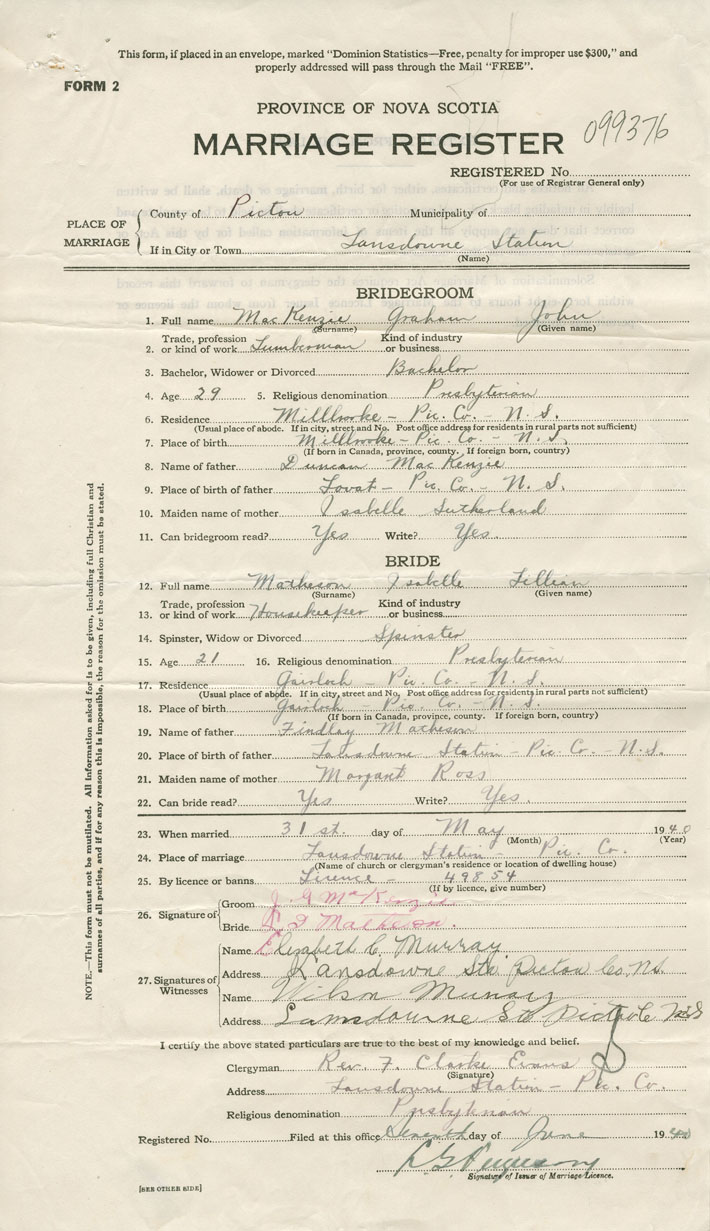 This form, if placed in an envelope, marked "Dominion Statistics—Free, penalty for improper use $300," and
properly addressed will pass through the Mail "FREE".
FORM 2
PROVINCE OF NOVA SCOTIA
MARRIAGE REGISTER
099376
REGISTERED No.
(For use of Registrar General only)
PLACE OF MARRIAGE
County of Pictou Municipality of
If in City or Town Lansdowne Station
(Name)
BRIDEGROOM
1. Full name MacKenzie Graham John
(Surname) (Given name)
2. Trade, profession or kind of work Lumberman Kind of industry or business
3. Bachelor, Widower or Divorced Bachelor
4. Age 29 5. Religious denomination Presbyterian
6. Residence Millbrooke - Pic. Co. - N. S.
(Usual place of abode. If in city, street and No. Post office address for residents in rural parts not sufficient)
7. Place of birth Millbrooke - Pic. Co. - N. S.
(If born in Canada, province, county. If foreign born, country)
8. Name of father Duncan MacKenzie
9. Place of birth of father Lovat - Pic. Co. - N. S.
10. Maiden name of mother Isabelle Sutherland
11. Can bridegroom read? Yes Write? Yes.
BRIDE
12. Full name Matheson Isabelle Lillian
(Surname) (Given name)
13. Trade, profession or kind of work Housekeeper Kind of industry or business
14. Spinster, Widow or Divorced Spinster
15. Age 21 16. Religious denomination Presbyterian
17. Residence Gairloch - Pic. Co. - N. S.
(Usual place of abode. If in city, street and No. Post office address for residents in rural parts not sufficient)
18. Place of birth Gairloch - Pic. Co. - N. S.
(If born in Canada, province, county. If foreign born, country)
19. Name of father Findlay Matheson
20. Place of birth of father Lansdowne Station - Pic. Co. - N. S.
21. Maiden name of mother Margaret Ross
22. Can bride read? Yes Write? Yes.
23. When married 31 st. day of May 1940
(Month) (Year)
24. Place of marriage Lansdowne Station Pic. Co.
(Name of church or clergyman's residence or location of dwelling house)
25. By licence or banns Licence - 49854
(If by licence, give number)
26. Signature of
Groom J. G McKenzie
Bride Matheson.
27. Signatures of Witnesses
Name Elizabeth C. Murray
Address Lansdowne Sta Pictou Co. N.S.
Name Wilson Murray
Address Lansdowne Sta Pictou Co N.S
I certify the above stated particulars are true to the best of my knowledge and belief.
Clergyman Rev. F. Clarke Evans
(Signature)
Address Lansdowne Station - Pic. Co.
Religious denomination Presbyterian
Registered No. Filed at this office Seventh day of June 1940
Signature of Issuer of Marriage Licence.
[SEE OTHER SIDE]
NOTE.—This form must not be mutilated. All Information asked for is to be given, including full Christian and
surnames of all parties, and if for any reason this is impossible, the reason for the omission must be stated.